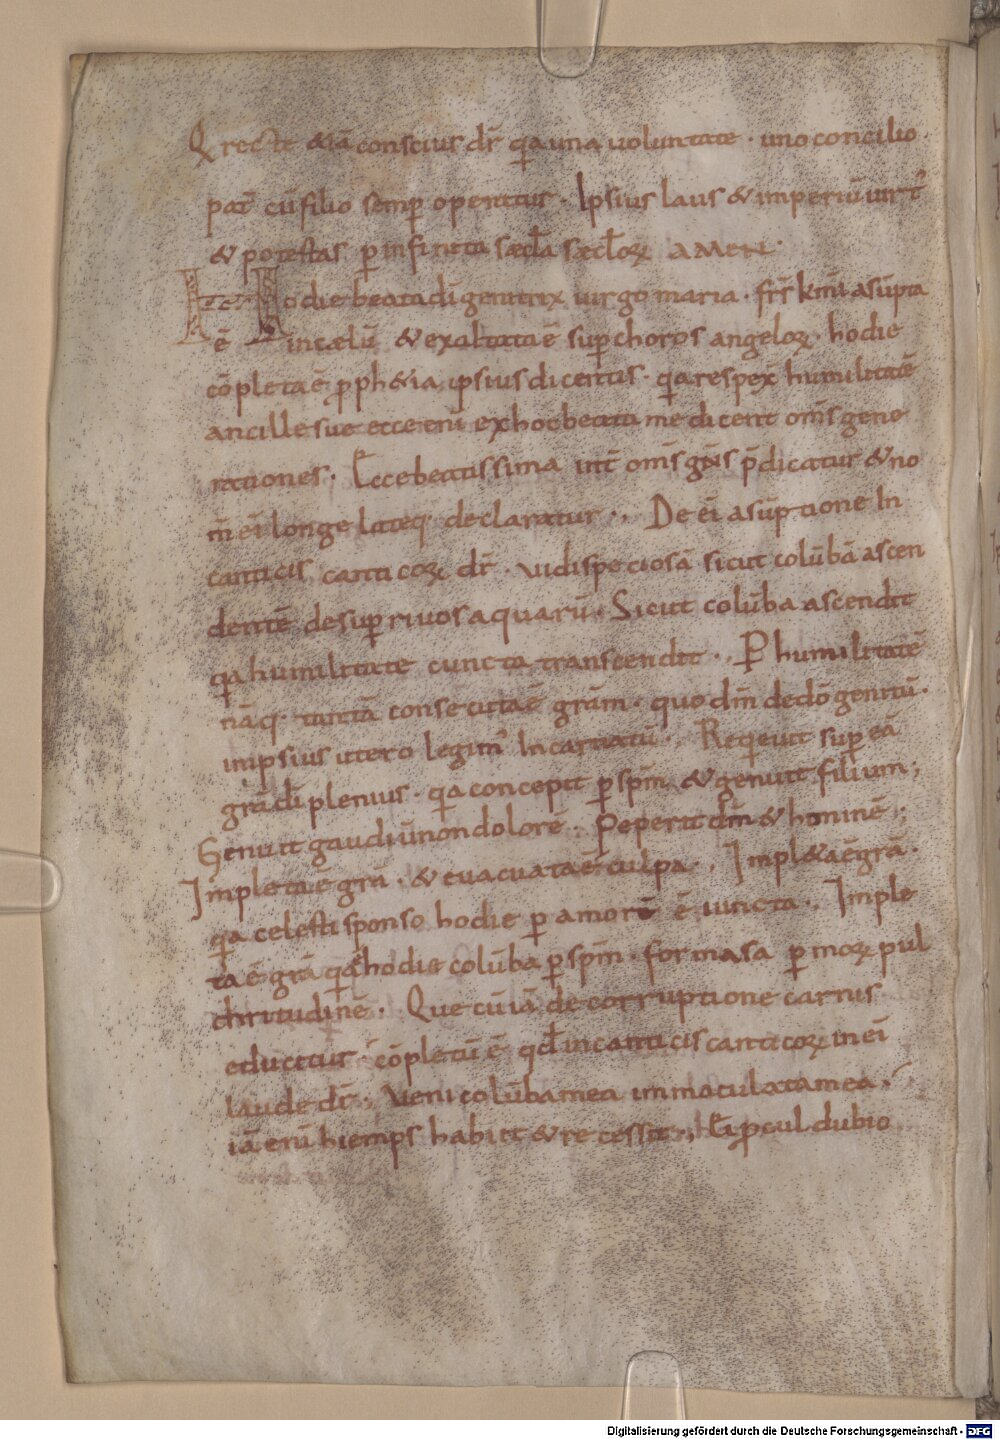 Q recte &iā conscius dr̄ qa una uoluntate · uno concilio ·
pat̄ cū filio semp operatur · Ipsius laus & imperiū uirt᾽
& potestas p infinita sæcl̄a sæcl̄oꝝ AMEN ·
Hodie beata dī genitrix uirgo maria · fr̄s km̄i asūpta
ē in cælū & exaltata ē sup choros angeloꝝ · hodie
cōpleta ē pph&ia ipsius dicentis · qa respex humilitatē
ancille sue ecce eni ex hoc beata me dicent om̄s gene
rationes · Ecce beatissima int̄ om̄s gn̄s p̄dicatur & no
m̄ ei longe lateq· declaratur ·, De ei asūptione In
canticis canticoꝝ dr̄ · uidi speciosā sicut colūbā ascen
dentē desup riuos aquarū · Sicut colūba ascendit
qa humilitate cuncta transcendit ·, P humilitatē
nāq· tantā consecuta ē grām · quo dm̄ de dō genitū ·
in ipsius utero legim᾽ Incarnatū ·, Requeuit sup eā
grā dī plenius · qa concepit p spm̄ & genuit filium ;
Genuit gaudiū non dolorē ·, Peperit dm̄ & hominē ·;
Impleta ē grā · & euacuata ē culpa ·, Impl&a ē grā ·
qa celesti sponso hodie p amorē ē iuncta ·, Imple
ta ē grā qa hodie colūba p spm̄ · formasa p moꝝ pul
chritudinē ·, Que cū iā de corruptione carnis
educitur · cōpletū ē qd̄ in canticis canticoꝝ in ei
laude dr̄ ·, Veni colūba mea immaculata mea ·
iā eni hiemps habiit & recessit ·, pcul dubio
Digitalisierung gefördert durch die Deutsche Forschungsgemeinschaft - DFG